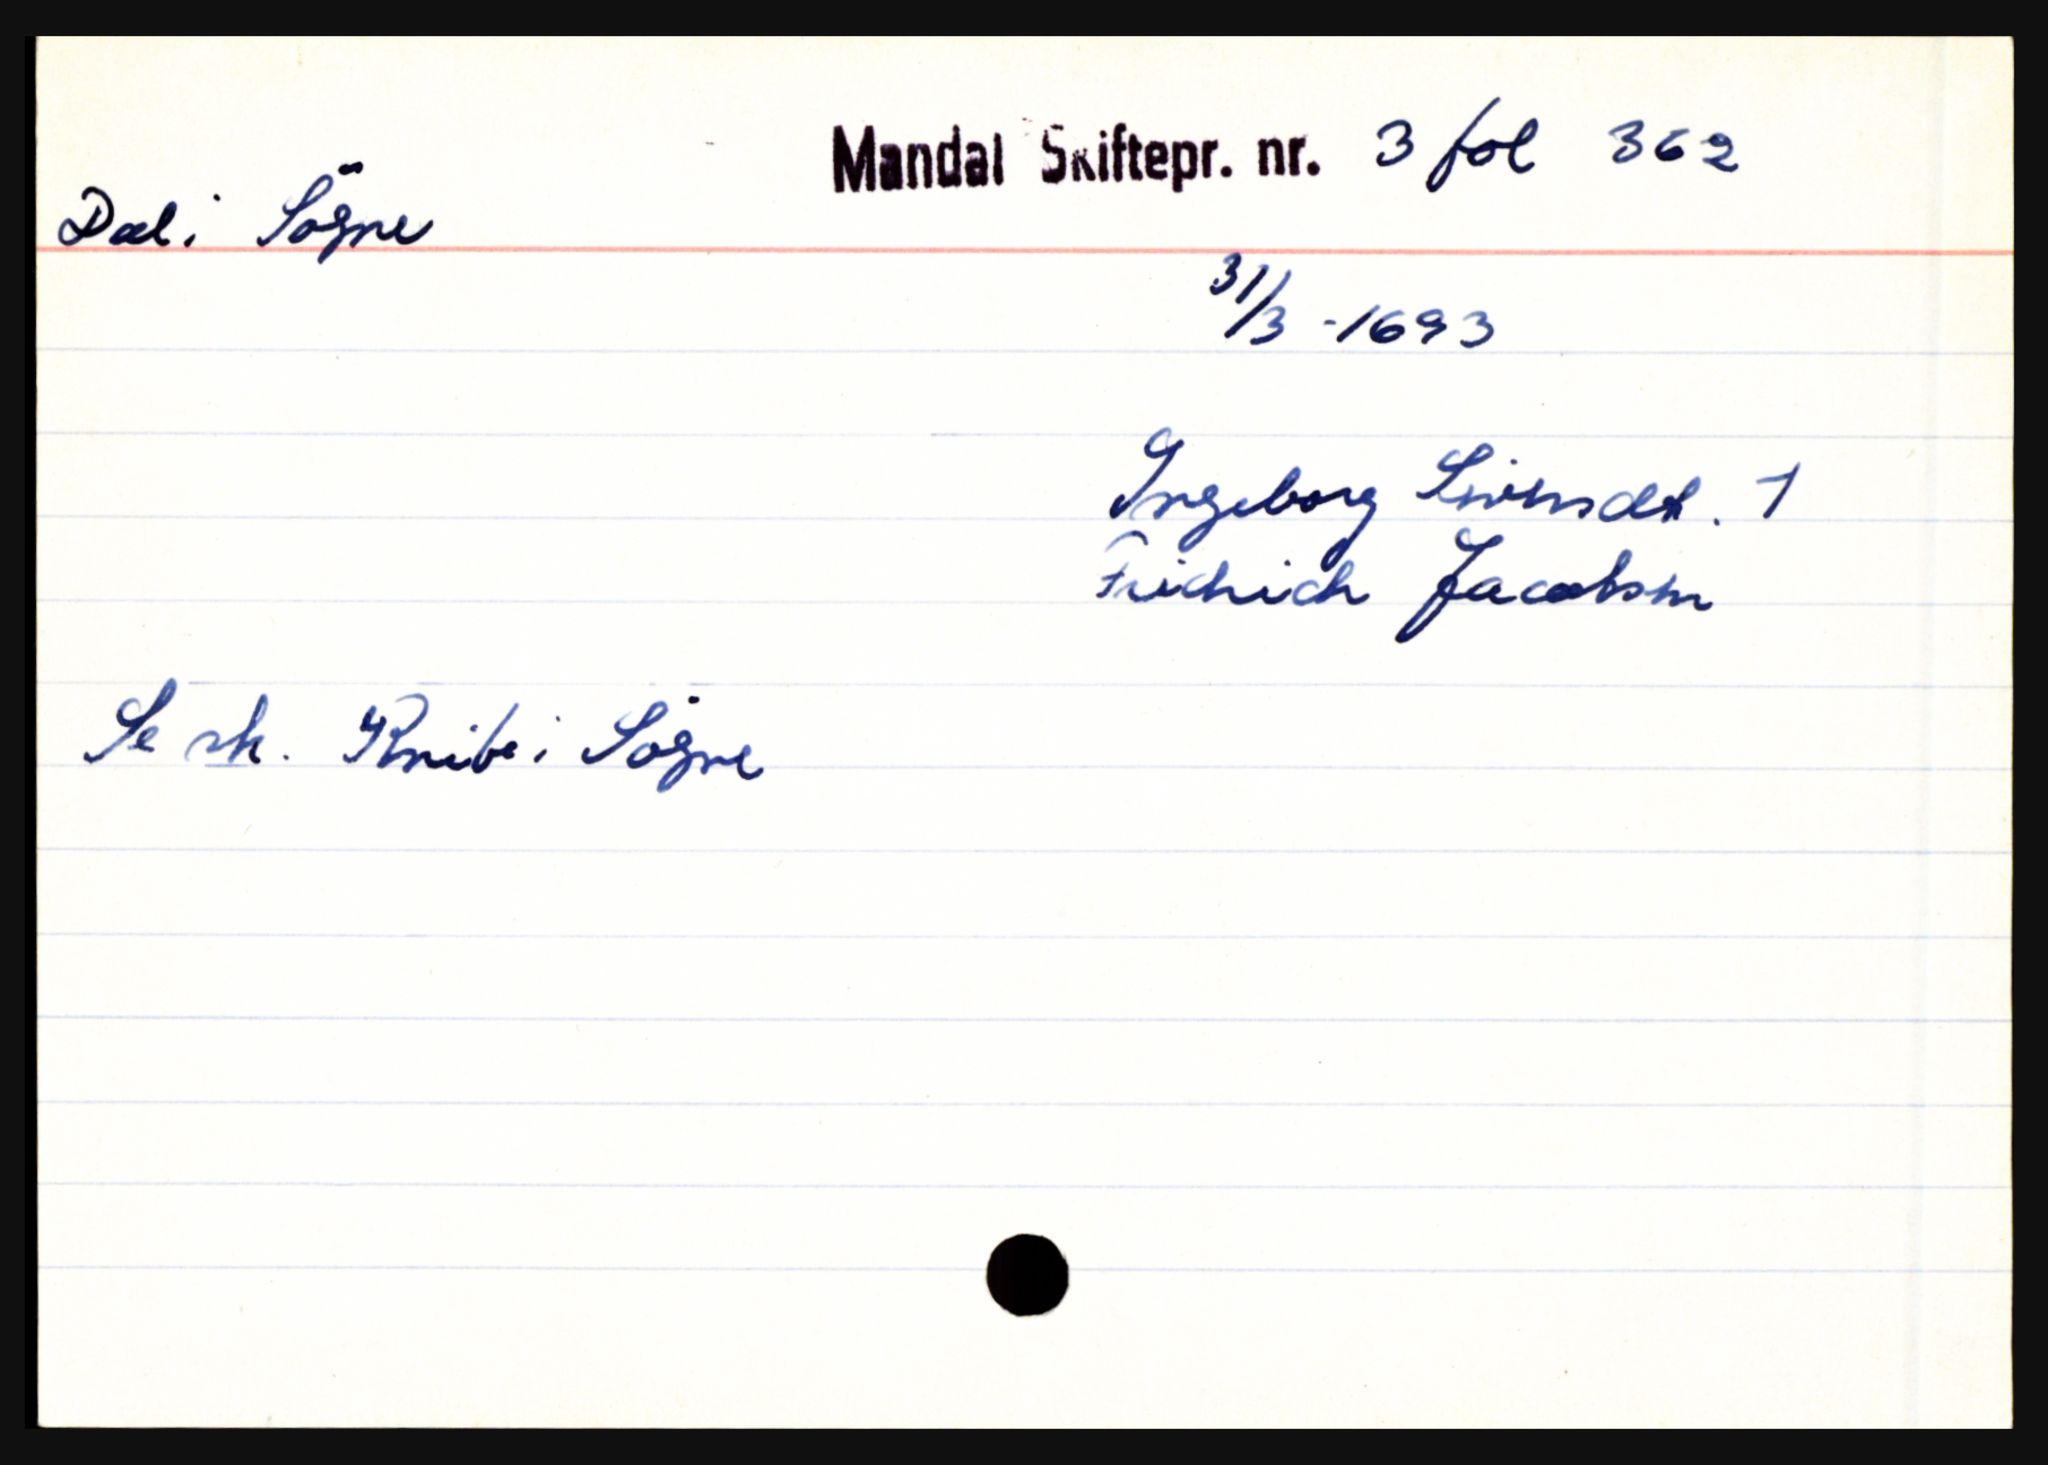 Mandal Skiftepr. nr. 3 fol 362
Dal i Søgne
31/3 - 1693
Ingeborg Sivensdtr. †
Fridrich Jacobsen
Se sk. Knibe i Søgne